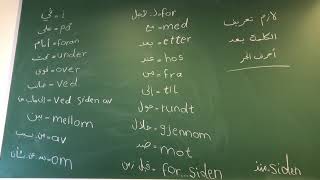 في = i
على = på
أمام = foran
تحت = under
فوق = over
جانب = ved
ved siden av
بين = mellom
من، بسبب = av
om
for = لـ، لأجل
med = مع
etter = بعد
hos = عند
fra = من
til = إلى
rundt = حول
gjennom = خلال
mot = ضد
for...siden = قبل زمن
لازم تعريف
الكلمة بعد
أحرف الجر
siden = منذ